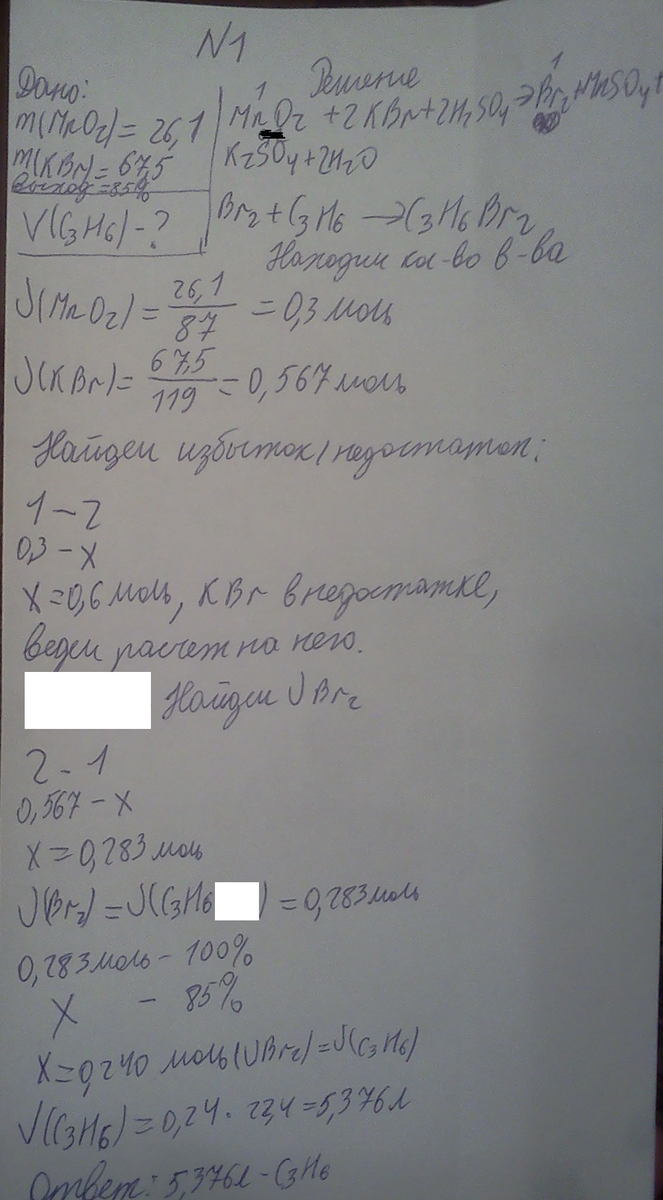 N1
Дано:
m(MnO2) = 26,1
m(KBr) = 67,5
выход = 85%
V(C3H6) - ?
Решение
1 1
MnO2 + 2KBr + 2H2SO4 → Br2 + MnSO4 +
K2SO4 + 2H2O
Br2 + C3H6 → C3H6Br2
Находим кол-во в-ва
ν(MnO2) = 26,1/87 = 0,3 моль
ν(KBr) = 67,5/119 = 0,567 моль
Найдем избыток/недостаток:
1 - 2
0,3 - x
x = 0,6 моль, KBr в недостатке,
ведем расчет на него.
Найдем νBr2
2 - 1
0,567 - x
x = 0,283 моль
ν(Br2) = ν(C3H6 ) = 0,283 моль
0,283 моль - 100%
x - 85%
x = 0,240 моль (νBr2) = ν(C3H6)
V(C3H6) = 0,24 · 22,4 = 5,376 л
Ответ: 5,376 л - C3H6